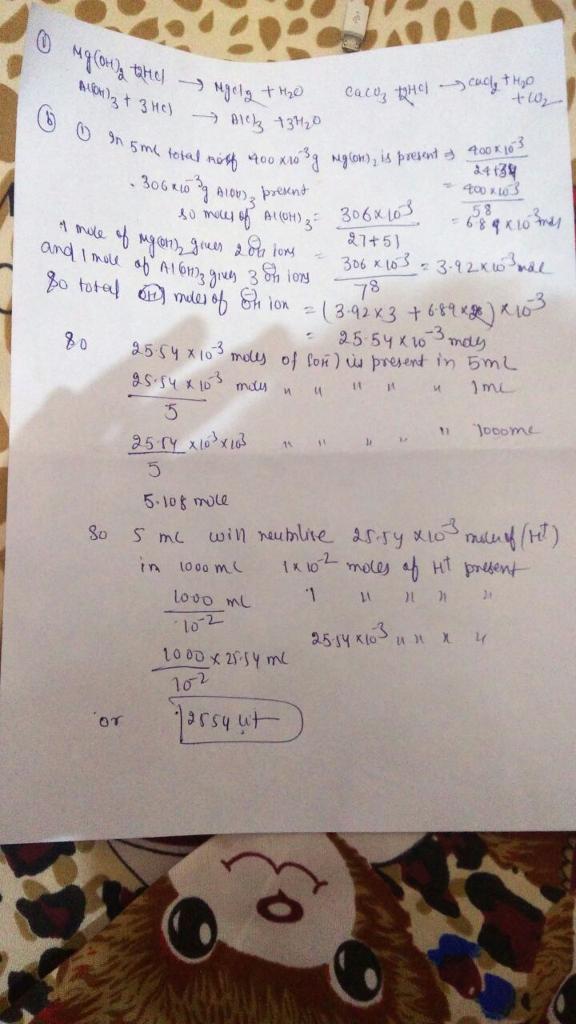 ① Mg(OH)₂ + 2HCl → MgCl₂ + H₂O CaCO₃ + 2HCl → CaCl₂ + H₂O + CO₂
Al(OH)₃ + 3HCl → AlCl₃ + 3H₂O
ⓑ ① In 5mL total 400 × 10⁻³g Mg(OH)₂ is present ⇒ 400 × 10⁻³ / 24+34
= 400 × 10⁻³ / 58
306 × 10⁻³g Al(OH)₃ present
= 6.89 × 10⁻³ moles
So moles of Al(OH)₃ = 306 × 10⁻³ / 27+51
1 mole of Mg(OH)₂ gives 2 OH⁻ ions = 306 × 10⁻³ / 78 = 3.92 × 10⁻³ mole
and 1 mole of Al(OH)₃ gives 3 OH⁻ ions
So total moles of OH⁻ ion = (3.92 × 3 + 6.89 × 2) × 10⁻³
= 25.54 × 10⁻³ moles
So 25.54 × 10⁻³ moles of (OH⁻) is present in 5mL
25.54 × 10⁻³ / 5 moles " " " " " 1mL
25.54 × 10⁻³ × 10³ / 5 " " " " " 1000mL
5.108 mole
So 5 mL will neutralise 25.54 × 10⁻³ moles of (H⁺)
in 1000 mL 1 × 10⁻² moles of H⁺ present
1000 / 10⁻² mL 1 " " " "
25.54 × 10⁻³ " " " "
1000 / 10⁻² × 25.54 mL
or 2554 Lit